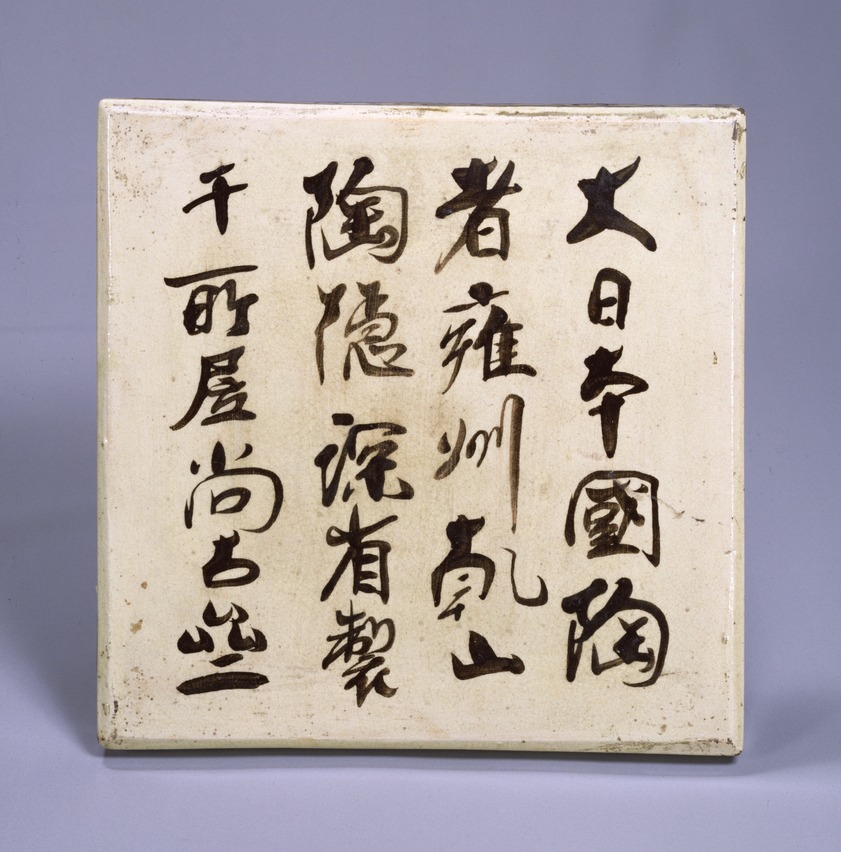 大日本國陶
者雍州乾山
陶隠深省製
于所屋尚古斎